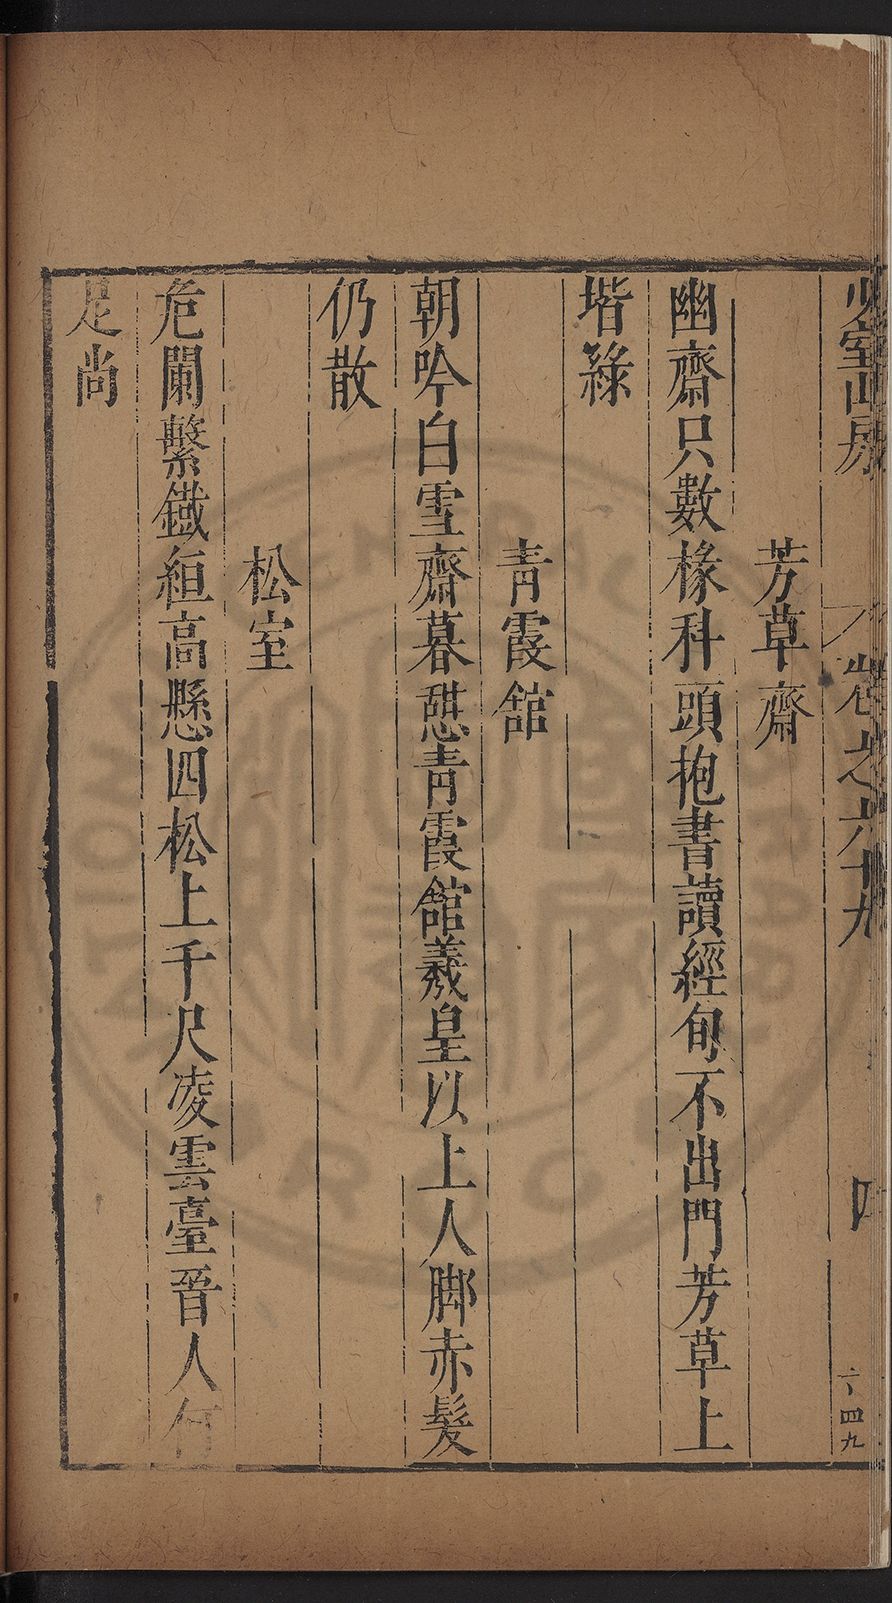 少室山房
卷之六十九
四
六一四九
芳草齋
幽齋只數椽科頭抱書讀經旬不出門芳草上
堦綠
青霞館
朝吟白雪齋暮憇青霞館羲皇以上人脚赤髮
仍散
松室
危闌繫鐡絙高懸四松上千尺凌雲臺晉人何
足尚